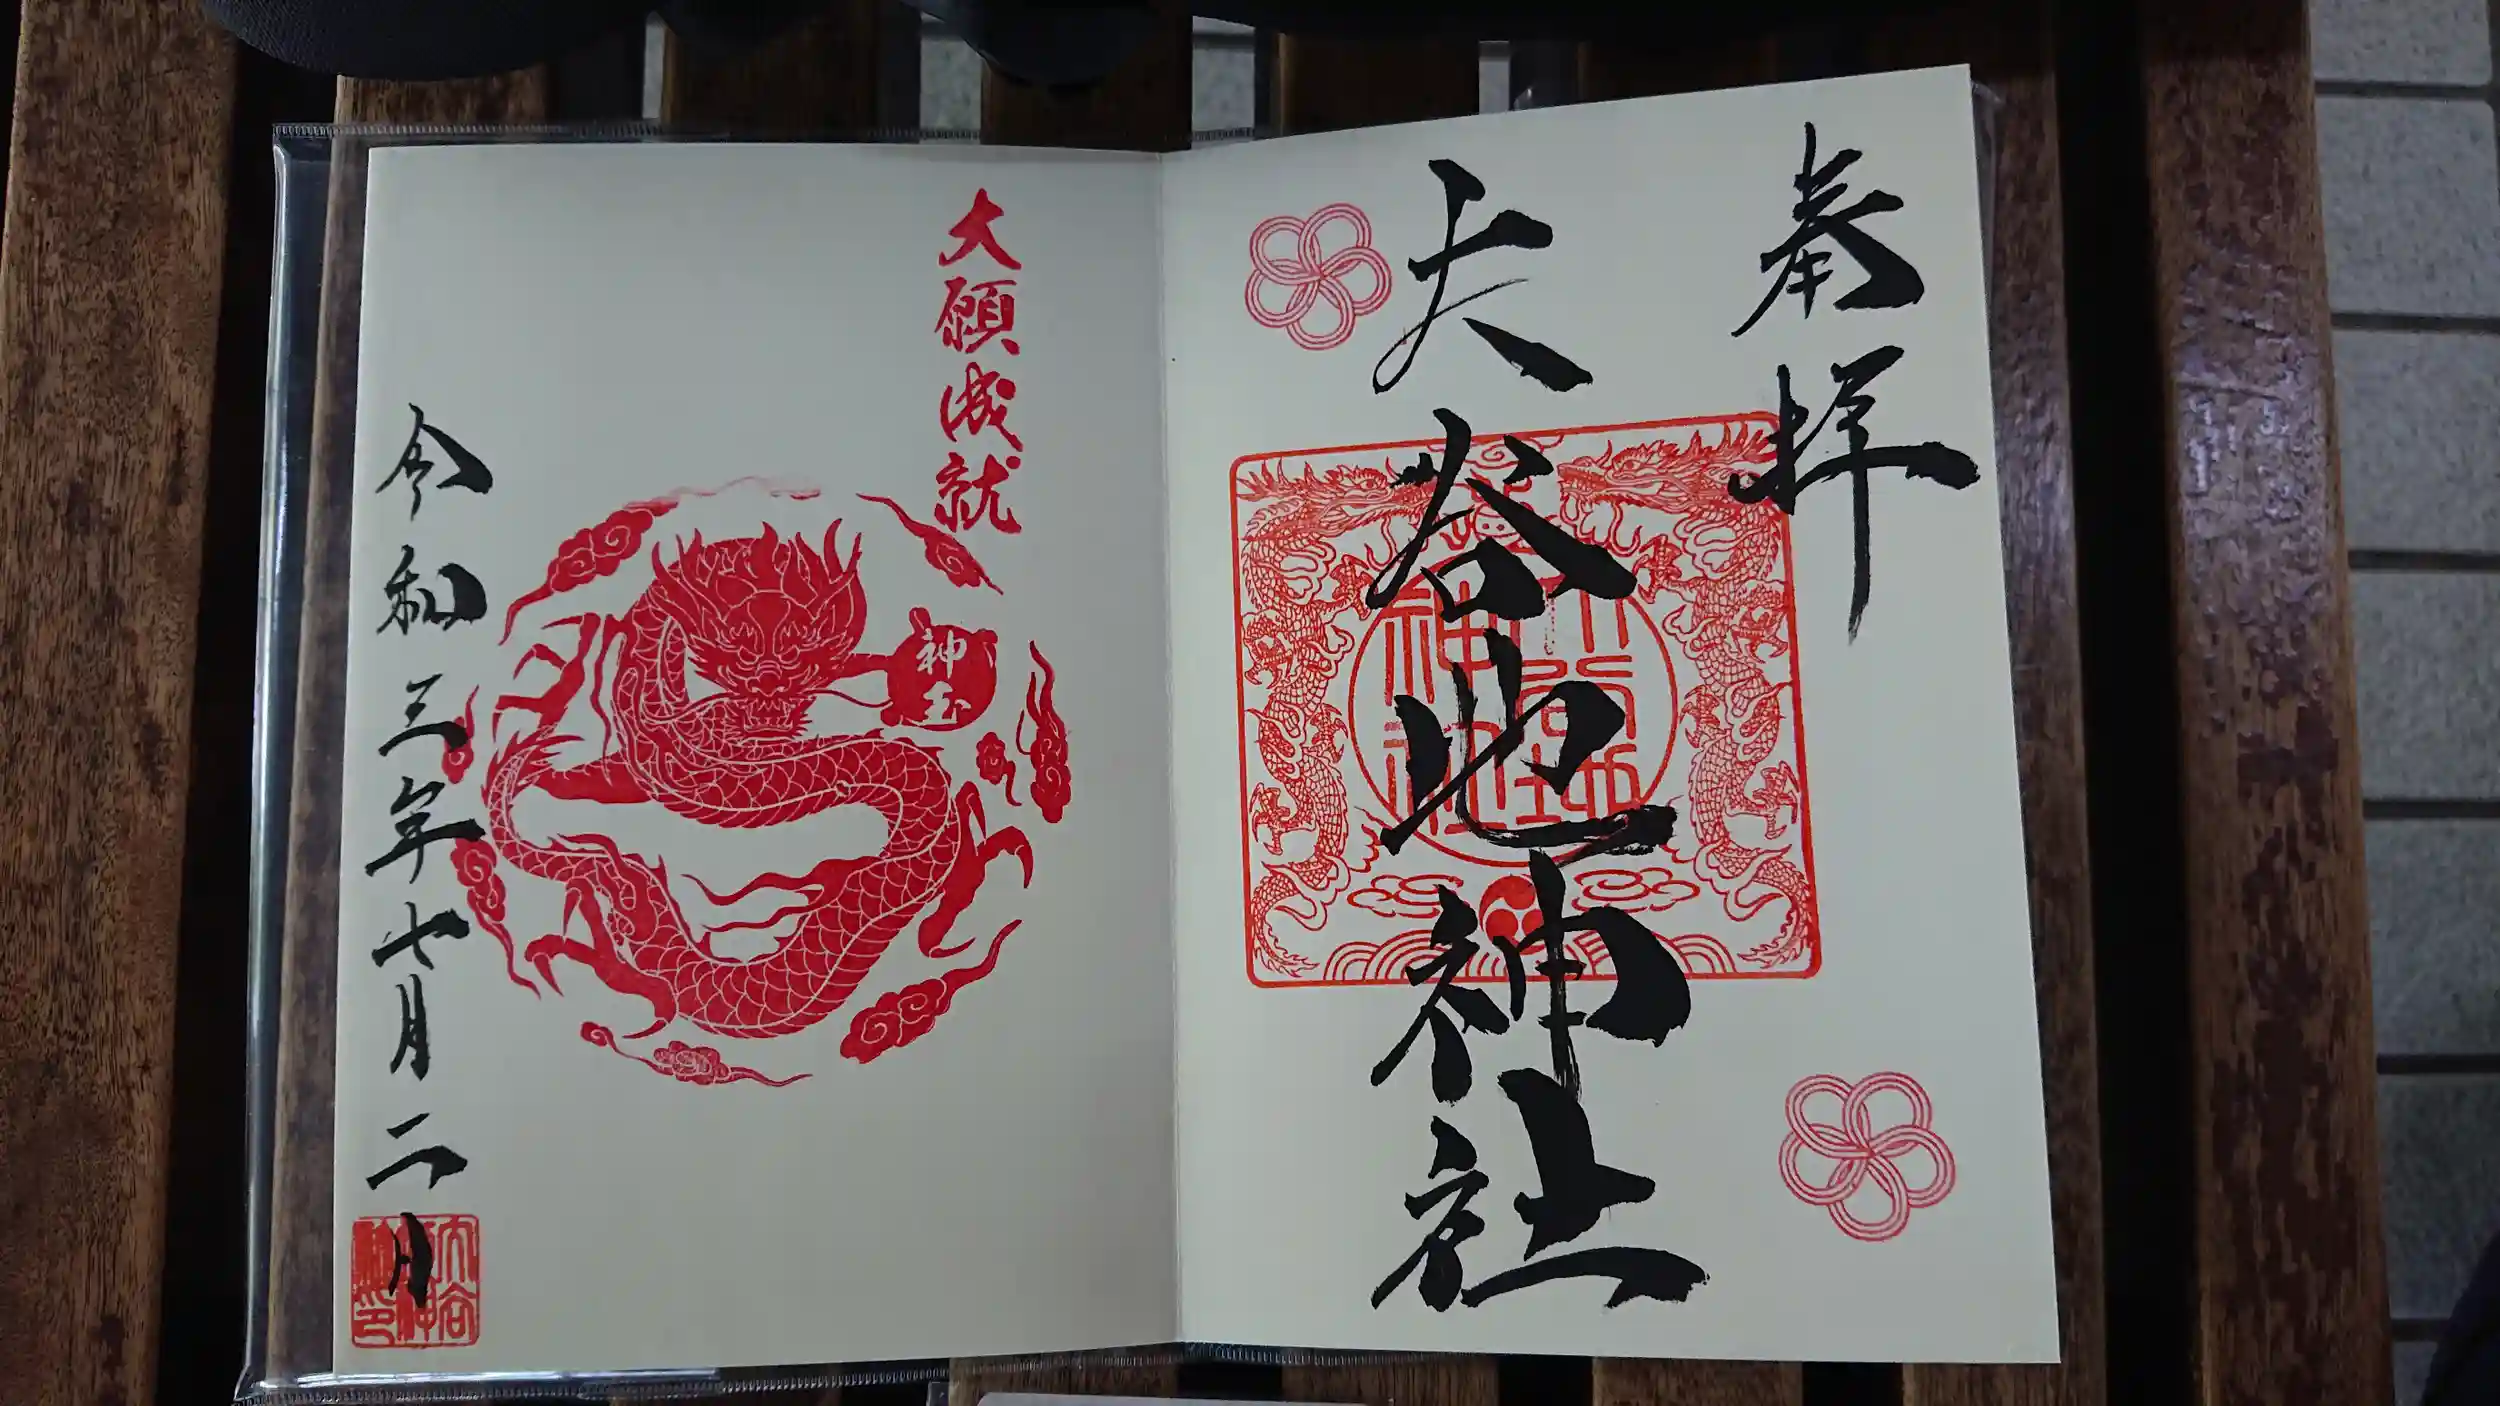 奉拝
大谷地神社
大願成就
神玉
令和三年七月二日